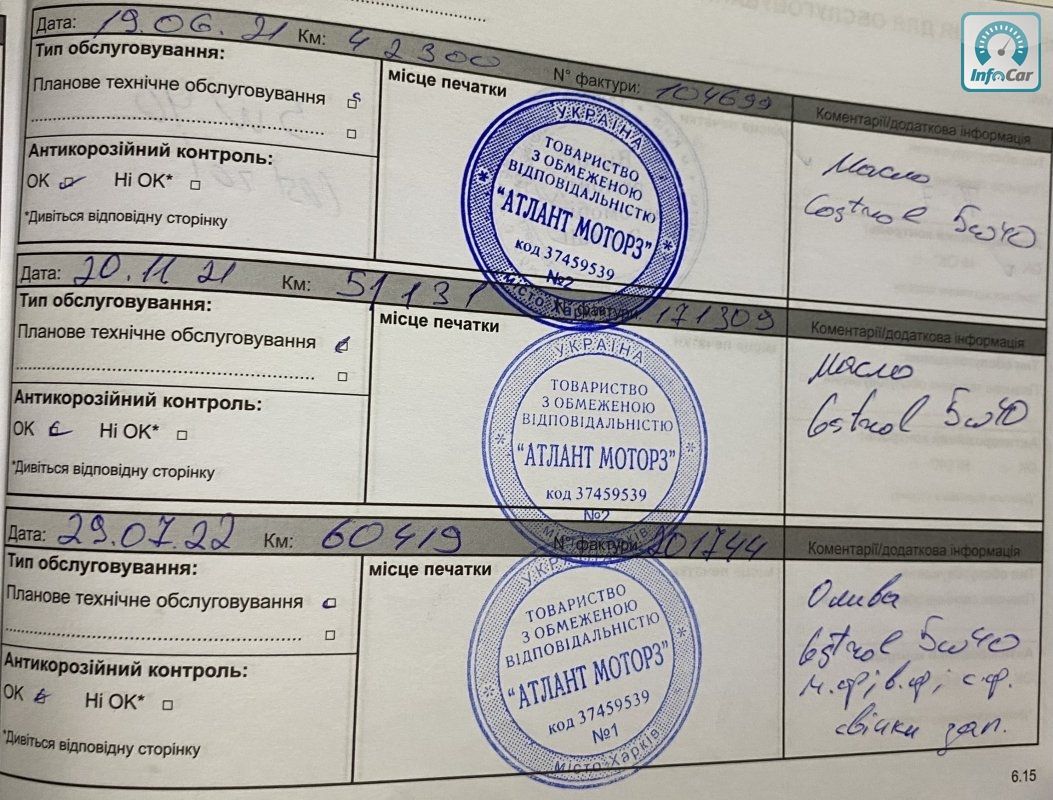 InfoCar
Дата: 19.06.21 Км: 42300 N° фактури: 104699
Тип обслуговування:
Планове технічне обслуговування
Антикорозійний контроль:
ОК Ні ОК*
*Дивіться відповідну сторінку
місце печатки
УКРАЇНА
ТОВАРИСТВО
З ОБМЕЖЕНОЮ
ВІДПОВІДАЛЬНІСТЮ
"АТЛАНТ МОТОРЗ"
код 37459539
№2
місто Харків
Коментарії/додаткова інформація
Масло
Castrol 5w40
Дата: 20.11 21 Км: 51131 N° фактури: 171309
Тип обслуговування:
Планове технічне обслуговування
Антикорозійний контроль:
ОК Ні ОК*
*Дивіться відповідну сторінку
місце печатки
УКРАЇНА
ТОВАРИСТВО
З ОБМЕЖЕНОЮ
ВІДПОВІДАЛЬНІСТЮ
"АТЛАНТ МОТОРЗ"
код 37459539
№2
місто Харків
Коментарії/додаткова інформація
Масло
Castrol 5w40
Дата: 29.07.22 Км: 60419 N° фактури: 201744
Тип обслуговування:
Планове технічне обслуговування
Антикорозійний контроль:
ОК Ні ОК*
*Дивіться відповідну сторінку
місце печатки
УКРАЇНА
ТОВАРИСТВО
З ОБМЕЖЕНОЮ
ВІДПОВІДАЛЬНІСТЮ
"АТЛАНТ МОТОРЗ"
код 37459539
№1
місто Харків
Коментарії/додаткова інформація
Олива
Castrol 5w40
м.ф; в.ф; с.ф.
свічки зап.
6.15